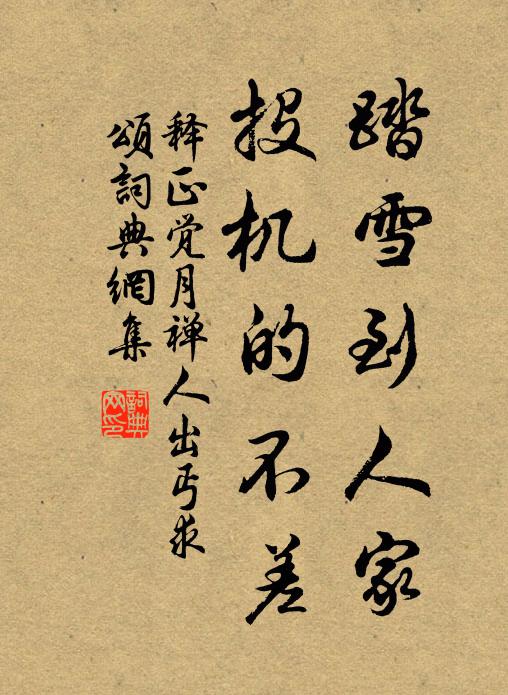 踏雪到人家
投机的不差
释正觉月禅人出丐求
颂詞典網集
詞典
网印